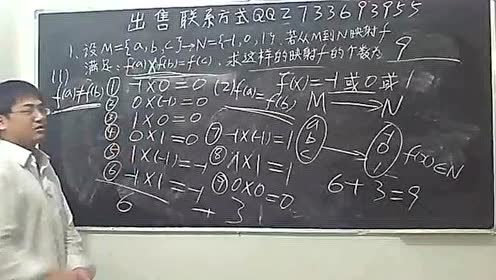 出售联系方式QQ2733693955
1、设M={a,b,c}→N={-1,0,1},若从M到N映射f
满足:f(a)×f(b)=f(c),求这样的映射f的个数为 9
(1) f(a)≠f(b)
① -1×0=0
② 0×(-1)=0
③ 1×0=0
④ 0×1=0
⑤ 1×(-1)=-1
⑥ -1×1=-1
6
(2) f(a)=f(b)
⑦ -1×(-1)=1
⑧ 1×1=1
⑨ 0×0=0
+ 3
f(x)=-1或0或1
M → N
a
b
c
-1
0
1
f(x)∈N
6+3=9